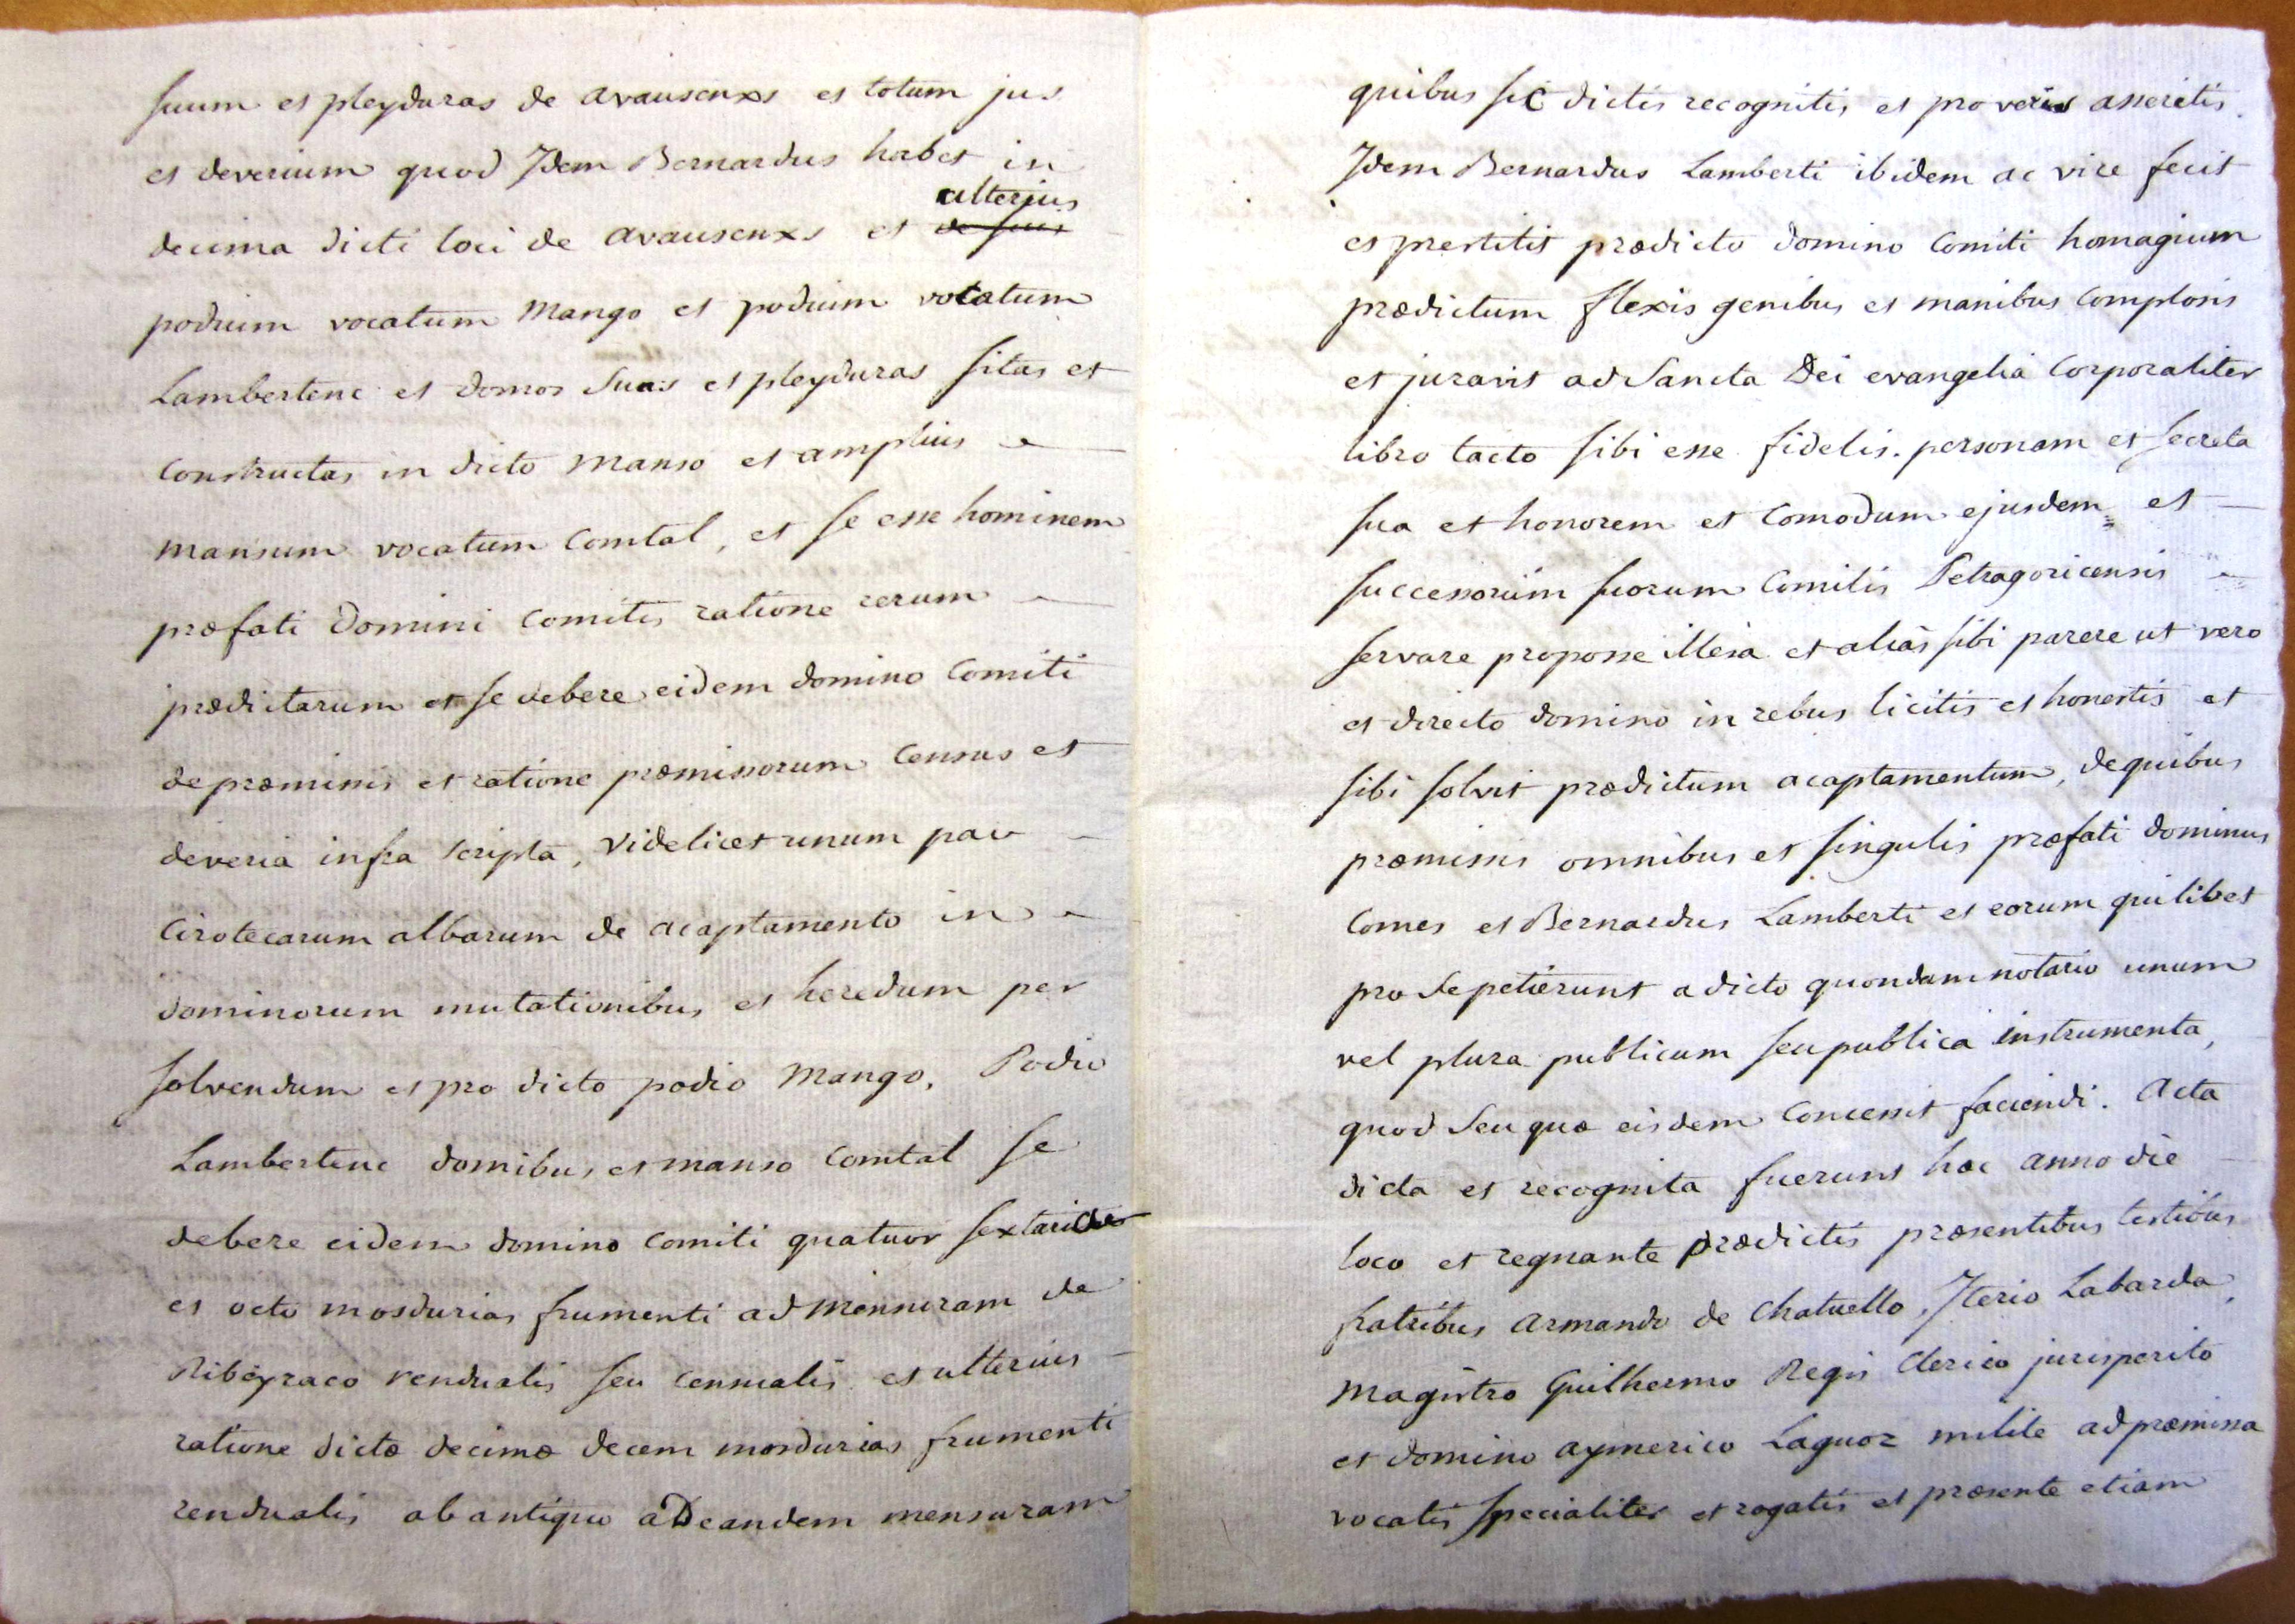 suum et pleyduras de avausenxs et totum jus
et deverium quod Idem Bernardus habet in
decima dicti loci de avausenxs et ~~de suis~~ ulterius
podium vocatum Mango et podium vocatum
Lambertenc et domos suas et pleyduras sitas et
constructas in dicto manso et amplius
mansum vocatum Comtal, et se esse hominem
præfati Domini Comitis ratione rerum
prædictarum et se debere eidem domino Comiti
de præmissis et ratione præmissorum Census et
deveria infra scripta, videlicet unum par
Cirotecarum albarum de acaptamento in
dominorum mutationibus et heredum per
solvendum et pro dicto podio Mango, Podio
Lambertenc domibus et manso Comtal se
debere eidem domino Comiti quatuor sextarios
et octo mosdurias frumenti ad mensuram de
Ribeyraco rendualis seu censualis et ulterius
ratione dictæ decimæ decem mosdurias frumenti
rendualis ab antiquo ad eandem mensuram
quibus sic dictis recognitis et pro veris asseritis.
Idem Bernardus Lamberti ibidem ac vice fecit
et prestitit prædicto domino Comiti homagium
prædictum flexis genibus et manibus Complosis
et juravit ad Sancta Dei evangelia Corporaliter
libro tacto sibi esse fidelis. personam et secreta
sua et honorem et Comodum ejusdem et
successorum suorum Comitis Petragoricensis
servare pro posse illesa et alias sibi parere ut vero
et directo domino in rebus licitis et honestis et
sibi solvit prædictum acaptamentum, de quibus
præmissis omnibus et singulis præfati dominus
Comes et Bernardus Lamberti et eorum quilibet
pro se petierunt a dicto quondam notario unum
vel plura publicum seu publica instrumenta,
quod seu quæ eisdem Concessit faciendi. Acta
dicta et recognita fuerunt hæc anno die
loco et regnante prædictis præsentibus testibus
fratribus Armando de Chatuello, Iterio Labarda,
Magistro Guilhermo Regis Clerico jurisperito
et domino aymerico Laguoz milite ad præmissa
vocatis specialiter et rogatis et præsente etiam